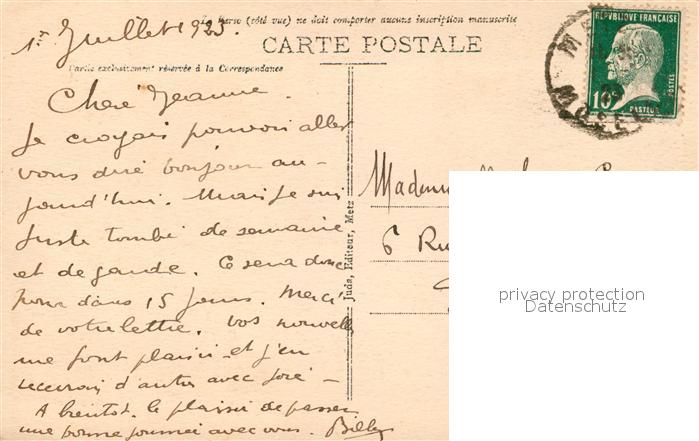 Le Verso (côté vue) ne doit comporter aucune inscription manuscrite
1er Juillet 1923.
CARTE POSTALE
Partie exclusivement réservée à la Correspondance
RÉPUBLIQUE FRANÇAISE
10c
POSTES
PASTEUR
METZ
MOSELLE
Chère Jeanne.
Je croyais pouvoir aller
vous dire bonjour au-
jourd'hui. Mais je suis
juste tombé de semaine
et de garde. Ce sera donc
pour dans 15 jours. Merci
de votre lettre. Vos nouvelles
me font plaisir et j'en
recevrai d'autres avec joie -
A bientôt. le plaisir de passer
une bonne journée avec vous. Billy
Juds, Editeur, Metz
Madem
6 Ru
privacy protection
Datenschutz